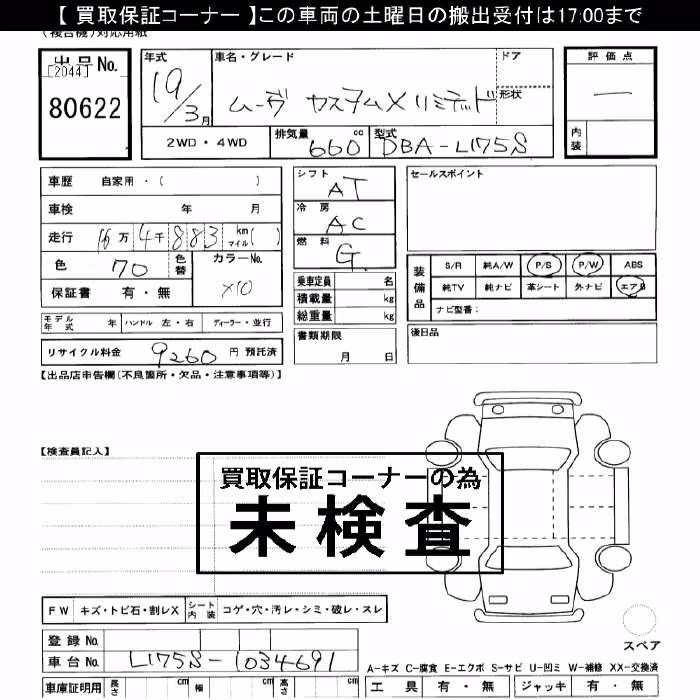 【 買取保証コーナー 】この車両の土曜日の搬出受付は17:00まで
(複合機)対応用紙
出品No.
[2044]
80622
年式
19/3月
車名・グレード
ムーヴ カスタムXリミテッド
ドア
形状
評価点
―
内装
2WD・4WD
排気量 660 cc
型式 DBA-L175S
車歴 自家用・( )
車検 年 月
走行 16万4千883 km マイル( )
色 70 色替
カラーNo. X10
保証書 有・無
シフト AT
冷房 AC
燃料 G
乗車定員 名
積載量 kg
総重量 kg
セールスポイント
装備品
S/R 純A/W P/S P/W ABS
純TV 純ナビ 革シート 外ナビ エアB
ナビ型番:
モデル年式 年 ハンドル 左・右 ディーラー・並行
書類期限
月 日
後日品
リサイクル料金 9260 円 預託済
【出品店申告欄(不良箇所・欠品・注意事項等)】
【検査員記入】
買取保証コーナーの為
未検査
FW キズ・トビ石・割レX シート内装 コゲ・穴・汚レ・シミ・破レ・スレ
登録No.
車台No. L175S-1034691
スペア
A-キズ C-腐食 E-エクボ S-サビ U-凹ミ W-補修 XX-交換済
車庫証明用 長さ cm 幅 cm 高さ cm
工具 有・無 ジャッキ 有・無